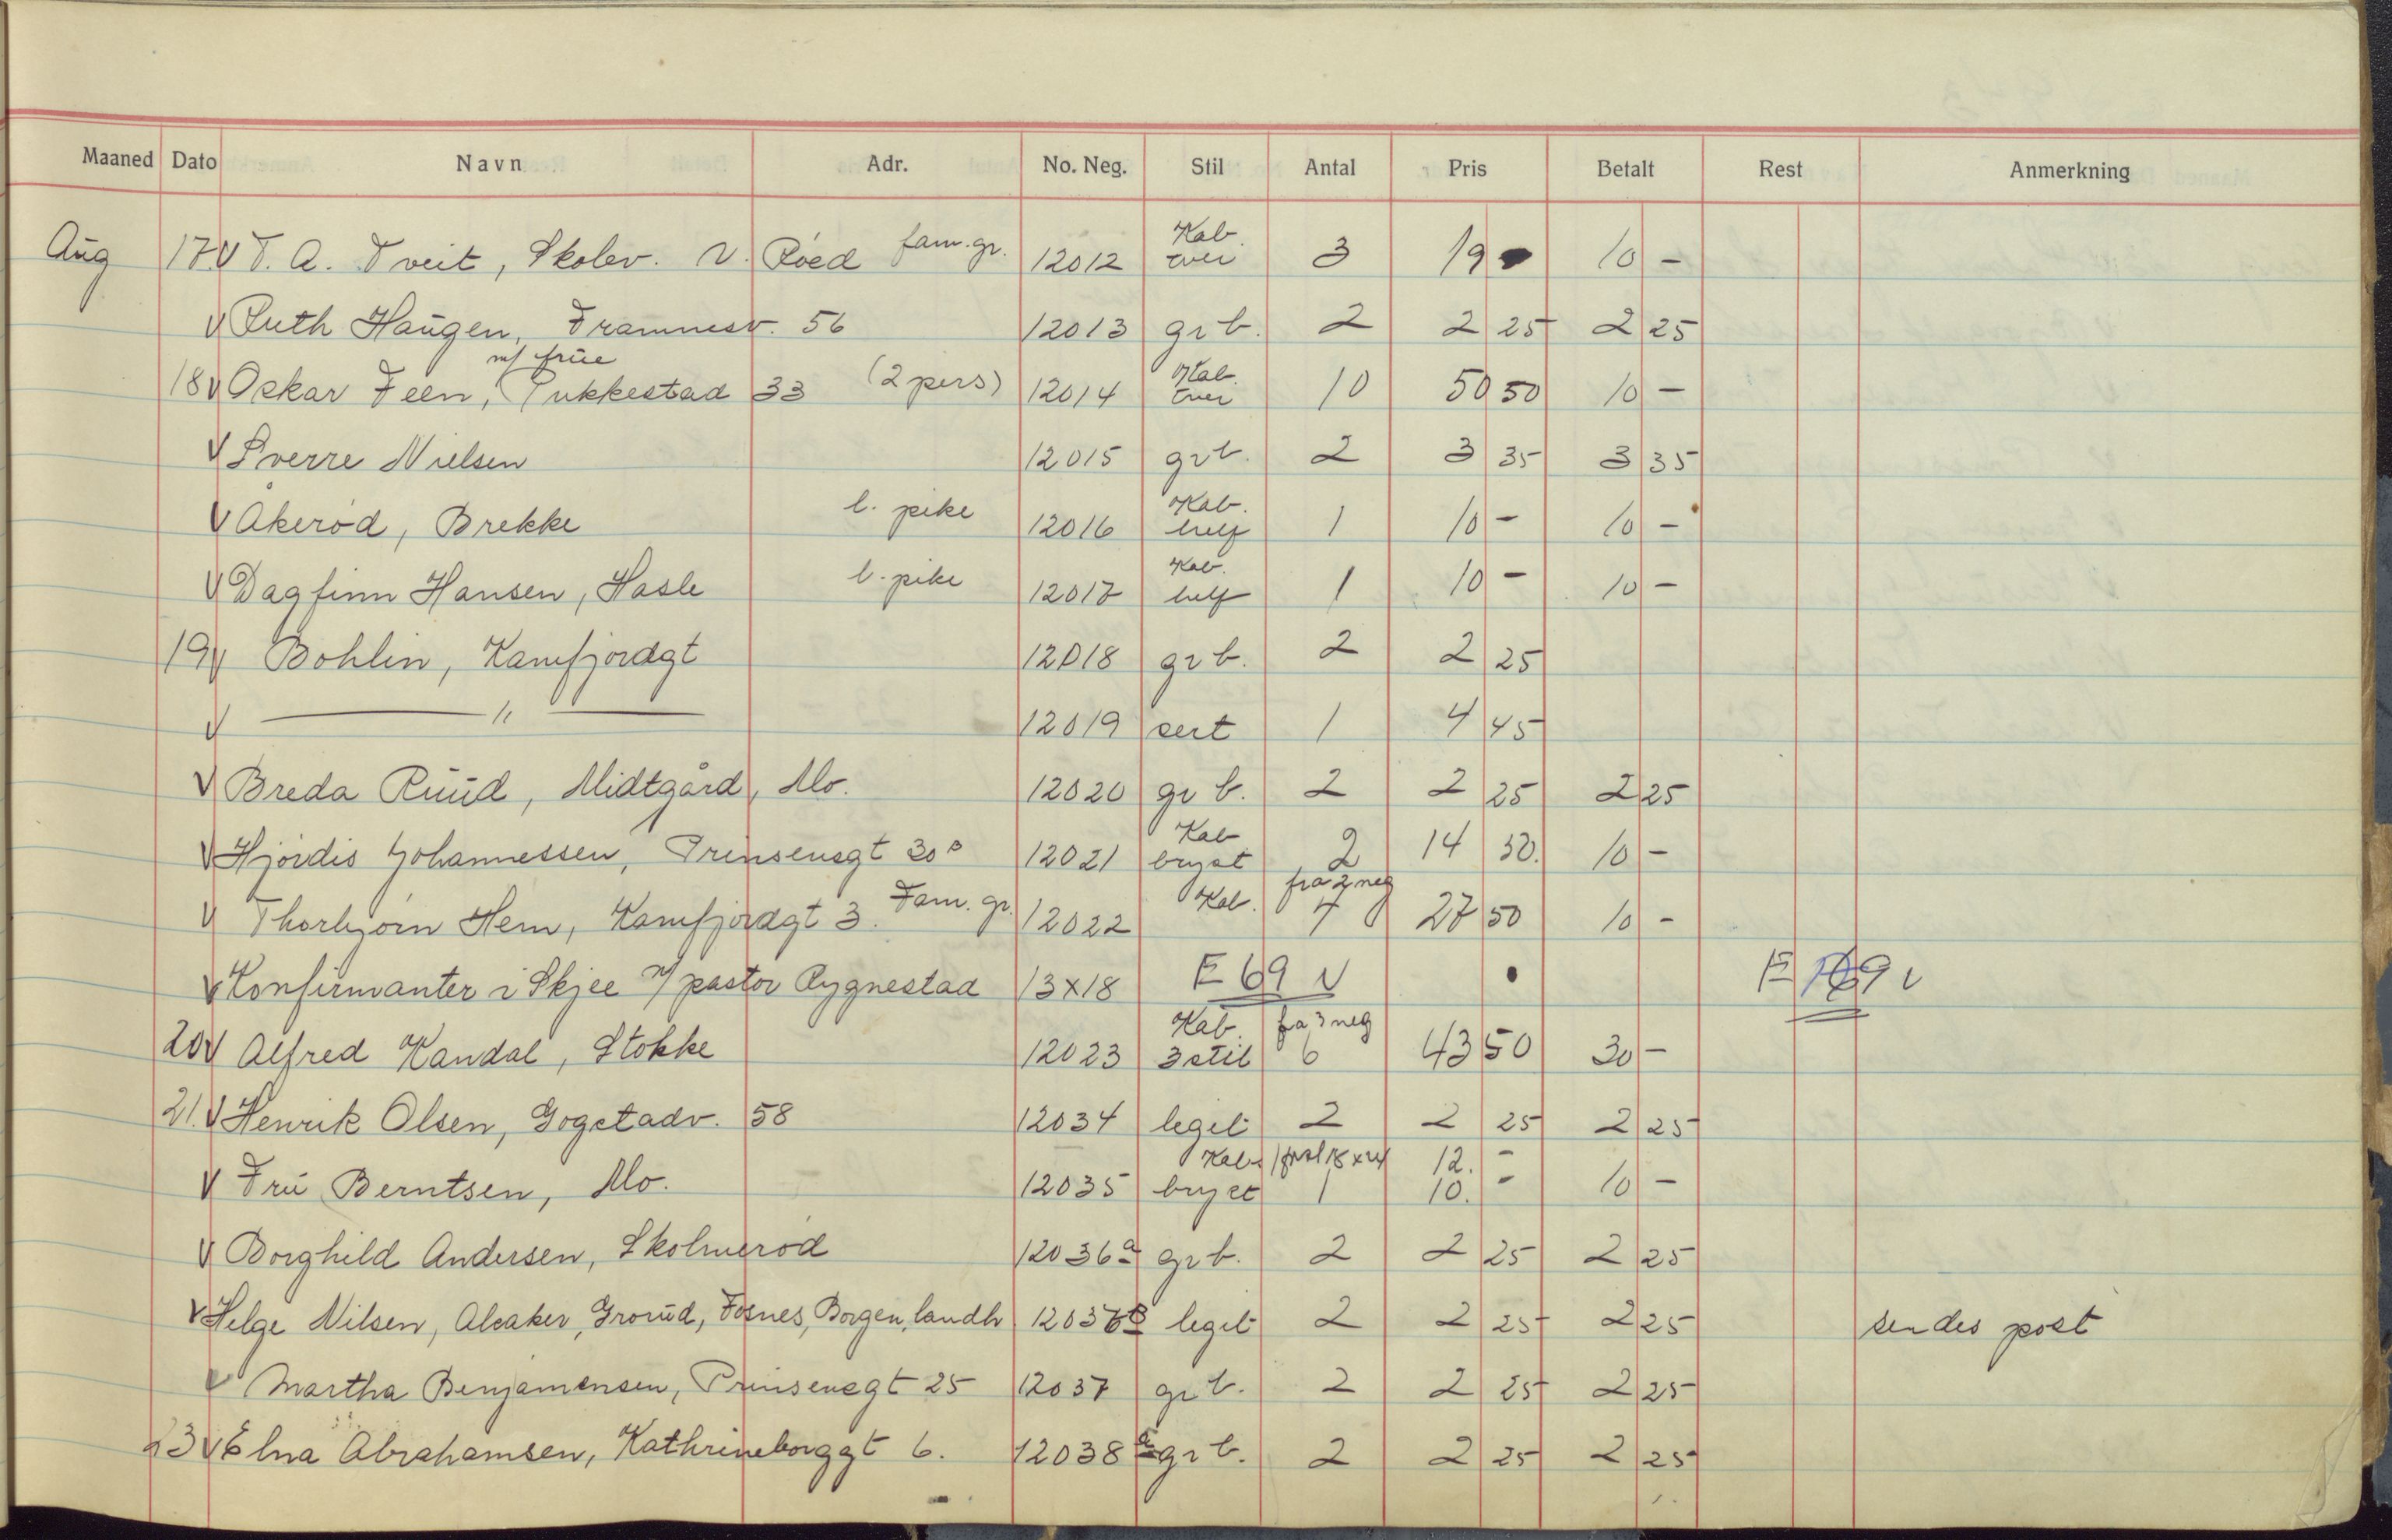 Maaned Dato Navn Adr. No. Neg. Stil Antal Pris Betalt Rest Anmerkning
Aug 17. V T. A. Tveit, Skolev. V. Röed fam. gr. 12012 Kab. tver 3 19 - 10 -
V Ruth Haugen, Framnesv. 56 12013 gr b. 2 2 25 2 25
m/ frue
18 V Oskar Feen, Pukkestad 33 (2 pers) 12014 Kab. tver 10 50 50 10 -
V Sverre Nielsen 12015 gr b. 2 3 35 3 35
V Åkerød, Brekke l. pike 12016 Kab. helf 1 10 - 10 -
V Dagfinn Hansen, Hasle l. pike 12017 Kab. helf 1 10 - 10 -
19 V Bohlin, Kamfjordgt 12018 gr b. 2 2 25
V — " — 12019 sert 1 4 45
V Breda Ruud, Midtgård, Mo. 12020 gr b. 2 2 25 2 25
V Hjördis Johannessen, Prinsensgt 30 B 12021 Kab bryst 2 14 50. 10 -
V Thorbjörn Hem, Kamfjordgt 3. Fam. gr. 12022 Kab. fra 2 neg 4 27 50 10 -
V Konfirmanter i Skjee m/ pastor Rygnestad 13x18 E 69 V E 69 V
20 V Alfred Kandal, Stokke 12023 Kab. 3 stil fra 3 neg 6 43 50 30 -
21. V Henrik Olsen, Gogstadv. 58 12034 legit 2 2 25 2 25
V Fru Berntsen, Mo. 12035 Kab. bryst 1 18x24 12. - 1 10. - 10 -
V Borghild Andersen, Skolmerød 12036 a gr b. 2 2 25 2 25
V Helge Nilsen, Alcaker, Grorud, Fosnes, Borgen, landh 12036 B legit 2 2 25 2 25 sendes post
V Martha Benjaminsen, Prinsensgt 25 12037 gr b. 2 2 25 2 25
23 V Elna Abrahamsen, Kathrineborggt 6. 12038 a gr b. 2 2 25 2 25